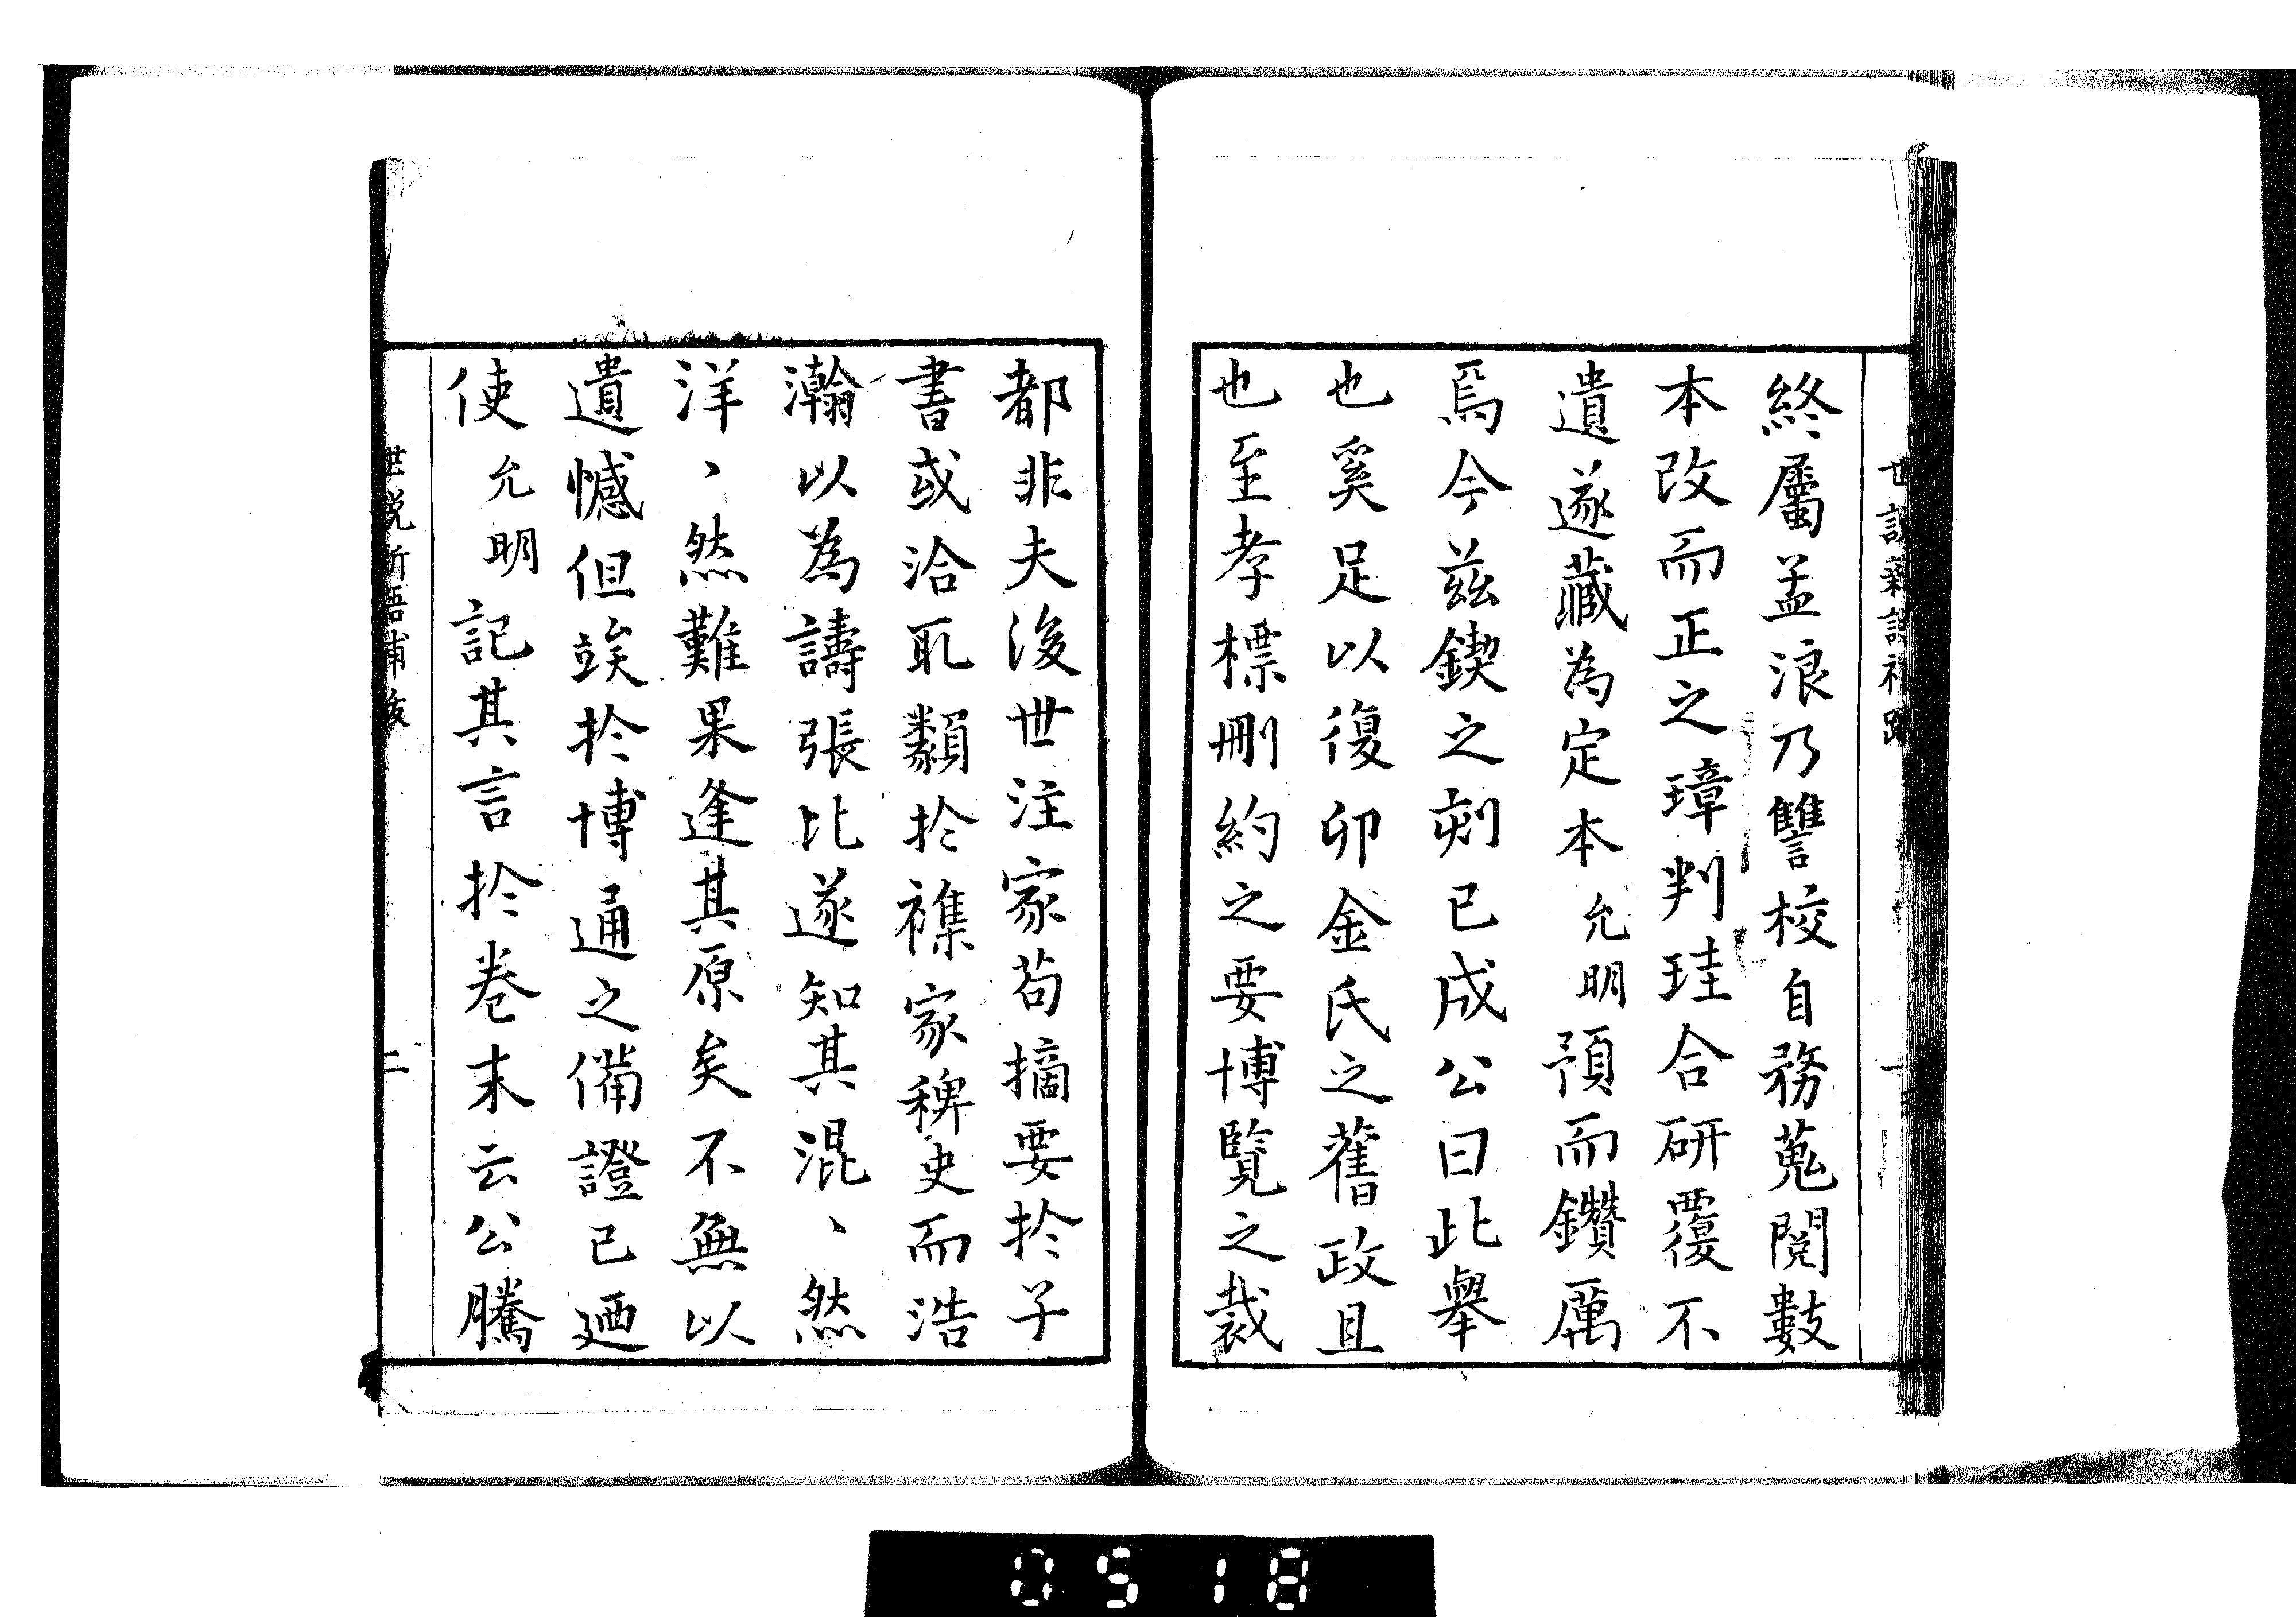 世説新語補跋
終屬孟浪乃讐校自務蒐閱數
本改而正之璋判珪合研覆不
遺遂藏為定本允明預而鑽厲
焉今茲鍥之刻已成公曰此舉
也奚足以復卯金氏之舊政且
也至孝標刪約之要博覽之裁
都非夫後世注家苟摘要扵子
書或洽取纇扵襍家稗史而浩
瀚以為譸張比遂知其混、然
洋、然難果逢其原矣不無以
遺憾但竢扵博通之備證已廼
使允明記其言扵卷末云公騰
世説新語補跋
二
0518